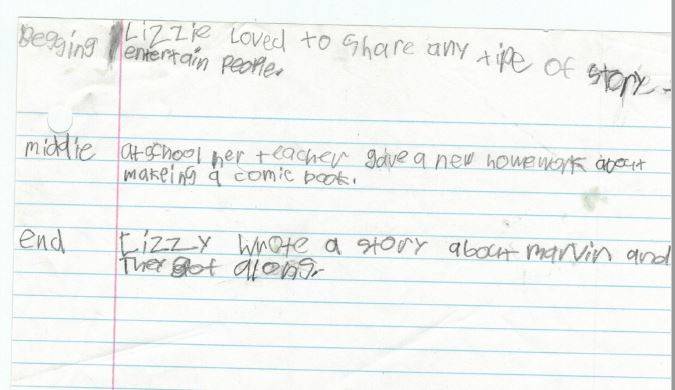 Begging Lizzie Loved to share any tipe of story -
entertain people.
middle at school her teacher gave a new homework about
makeing a comic book.
end Lizzy wrote a story about marvin and
They got along.